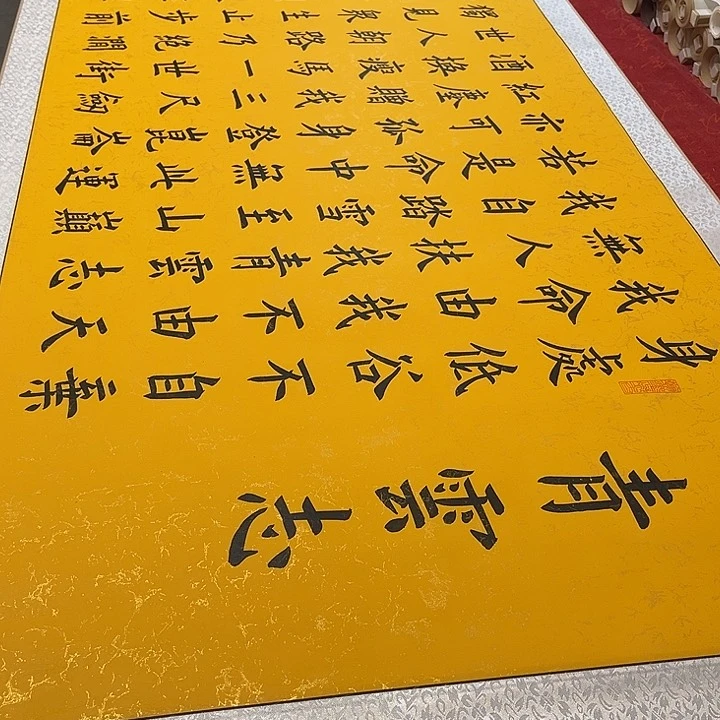 青雲志
身處低谷不自棄
我命由我不由天
無人扶我青雲志
我自踏雪至山巔
若是命中無此運
亦可孤身登崑崙
紅塵贈我三尺劍
酒換瘦馬一世街
世人朝路乃絕澗
獨見眾生止步前